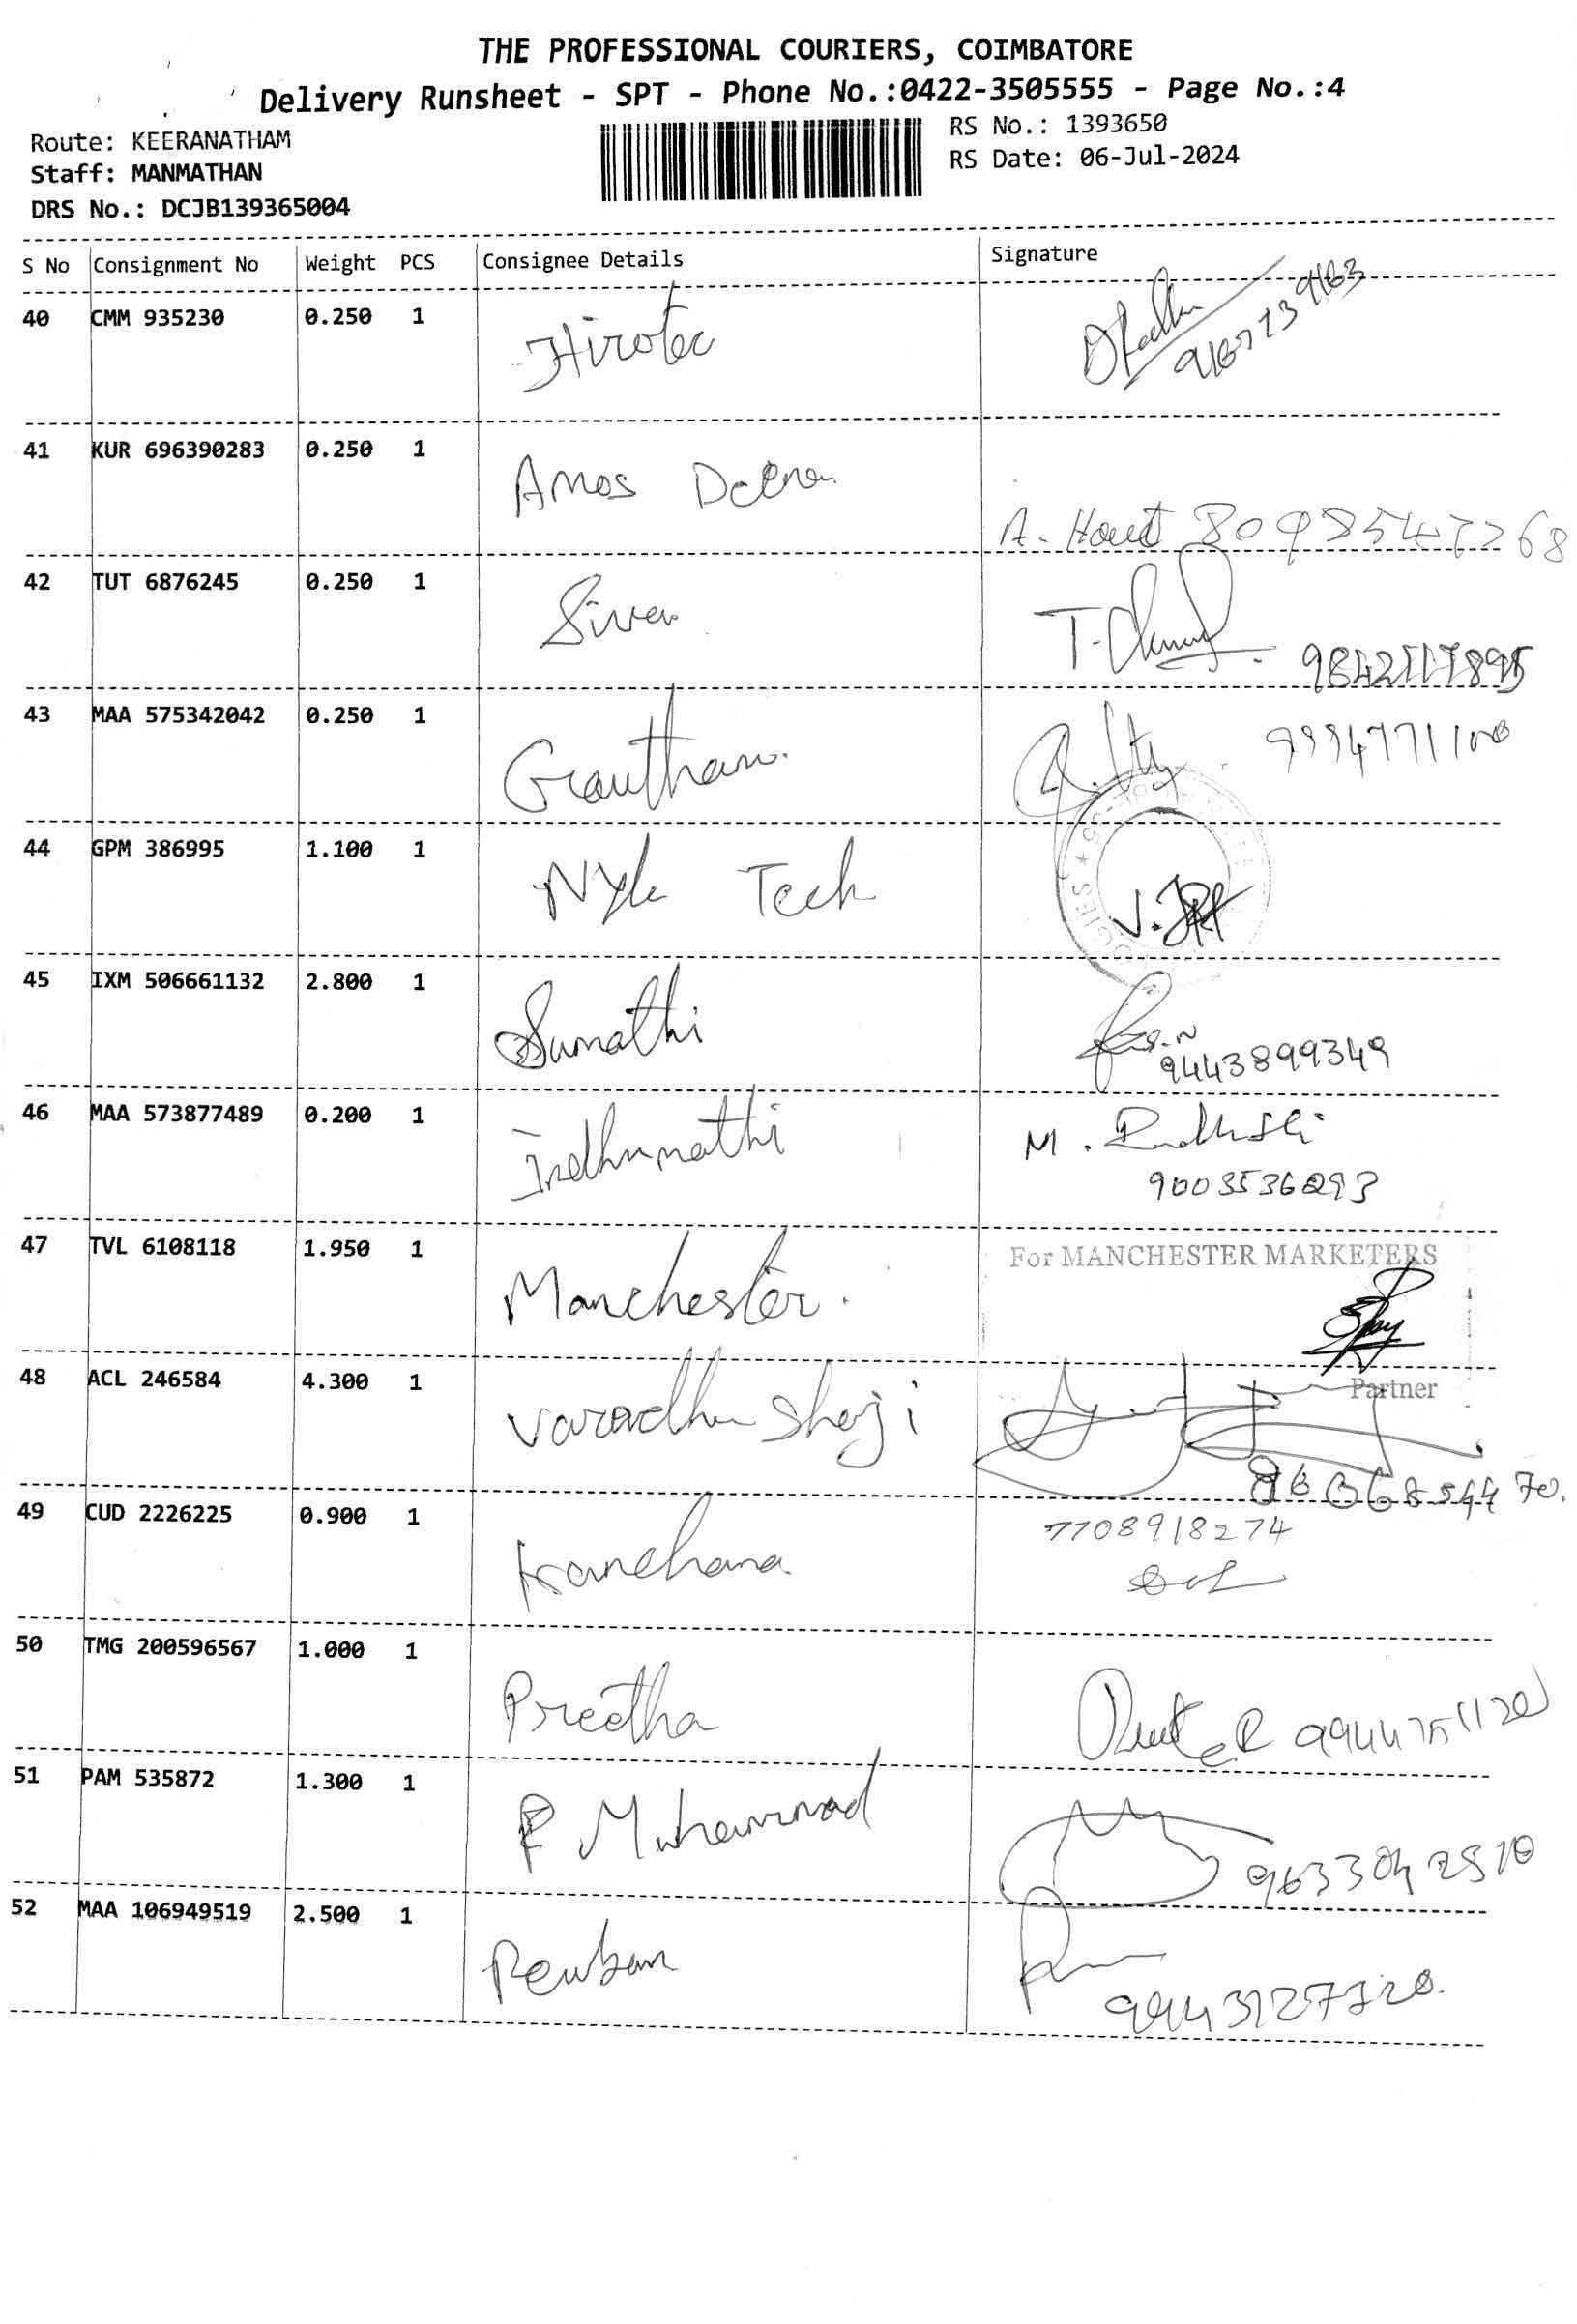 THE PROFESSIONAL COURIERS, COIMBATORE
Delivery Runsheet - SPT - Phone No.:0422-3505555 - Page No.:4
Route: KEERANATHAM
Staff: MANMATHAN
DRS No.: DCJB139365004
RS No.: 1393650
RS Date: 06-Jul-2024
S No Consignment No Weight PCS Consignee Details Signature
40 CMM 935230 0.250 1 Hirotec
41 KUR 696390283 0.250 1 Amos
42 TUT 6876245 0.250 1 Siva
43 MAA 575342042 0.250 1 Gautham.
44 GPM 386995 1.100 1 Tech
45 IXM 506661132 2.800 1 Sumathi
9443899349
46 MAA 573877489 0.200 1 Indhumathi M.
47 TVL 6108118 1.950 1 Manchester. For MANCHESTER MARKETERS
Partner
48 ACL 246584 4.300 1 Shaji
49 CUD 2226225 0.900 1 Kanchana 7708918274
50 TMG 200596567 1.000 1 Preetha
51 PAM 535872 1.300 1 Muhammad
52 MAA 106949519 2.500 1 Reuban